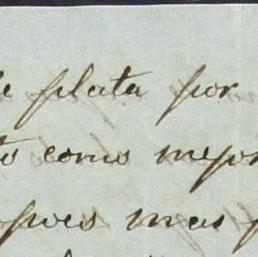 e plata por
to como mejor
pues mas